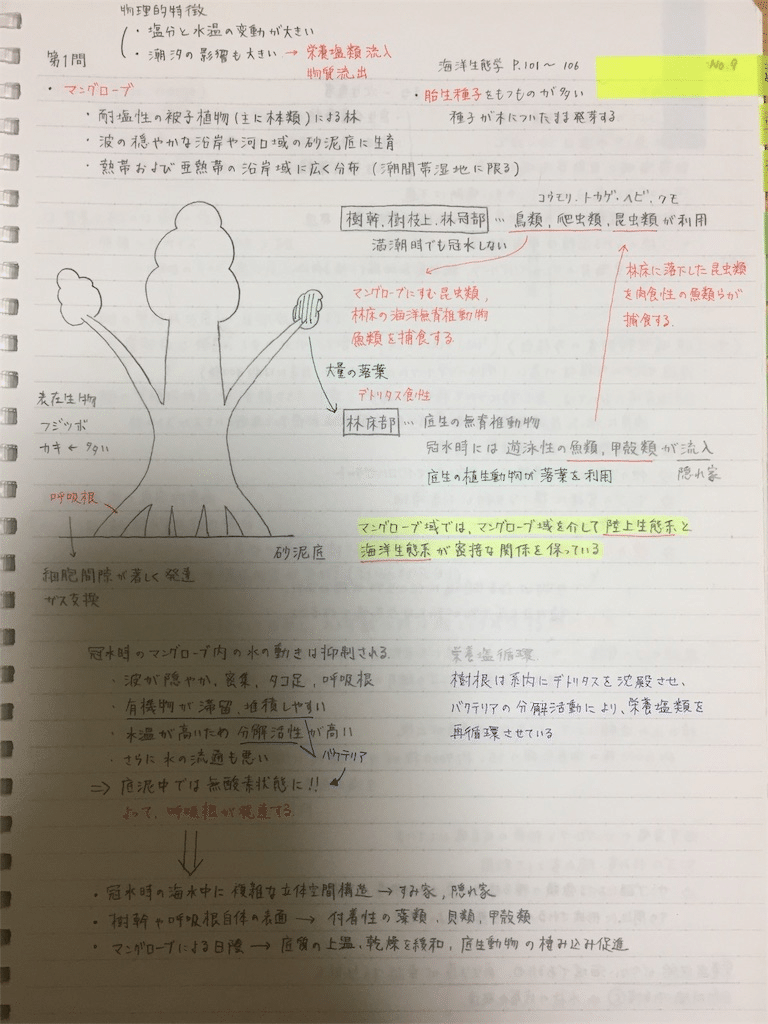 物理的特徴
・塩分と水温の変動が大きい
・潮汐の影響も大きい → 栄養塩類流入
物質流出
第1問
海洋生態学 P.101〜106
No.9
・マングローブ
・耐塩性の被子植物(主に林類)による林
・波の穏やかな沿岸や河口域の砂泥底に生育
・熱帯および亜熱帯の沿岸域に広く分布 (潮間帯湿地に限る)
・胎生種子をもつものが多い
種子が木についたまま発芽する
コウモリ・トカゲ・ヘビ・クモ
樹幹、樹枝上、林冠部 … 鳥類、爬虫類、昆虫類が利用
満潮時でも冠水しない
マングローブにすむ昆虫類、
林床の海洋無脊椎動物
魚類を捕食する
林床に落下した昆虫類
を肉食性の魚類らが
捕食する
大量の落葉
デトリタス食性
林床部 … 底生の無脊椎動物
冠水時には遊泳性の魚類、甲殻類が流入
隠れ家
底生の植生動物が落葉を利用
表在生物
フジツボ
カキ ← 多い
呼吸根
砂泥底
細胞間隙が著しく発達
ガス交換
マングローブ域では、マングローブ域を介して陸上生態系と
海洋生態系が密接な関係を保っている
冠水時のマングローブ内の水の動きは抑制される
・波が隠やか、密集、タコ足、呼吸根
・有機物が滞留、堆積しやすい
・水温が高いため分解活性が高い
・さらに水の流通も悪い
バクテリア
⇒ 底泥中では無酸素状態に!!
よって、呼吸根が発達する
栄養塩循環
樹根は系内にデトリタスを沈殿させ、
バクテリアの分解活動により、栄養塩類を
再循環させている
・冠水時の海水中に複雑な立体空間構造 → すみ家、隠れ家
・樹幹や呼吸根自体の表面 → 付着性の藻類、貝類、甲殻類
・マングローブによる日陰 → 底質の上温、乾燥を緩和、底生動物の棲み込み促進